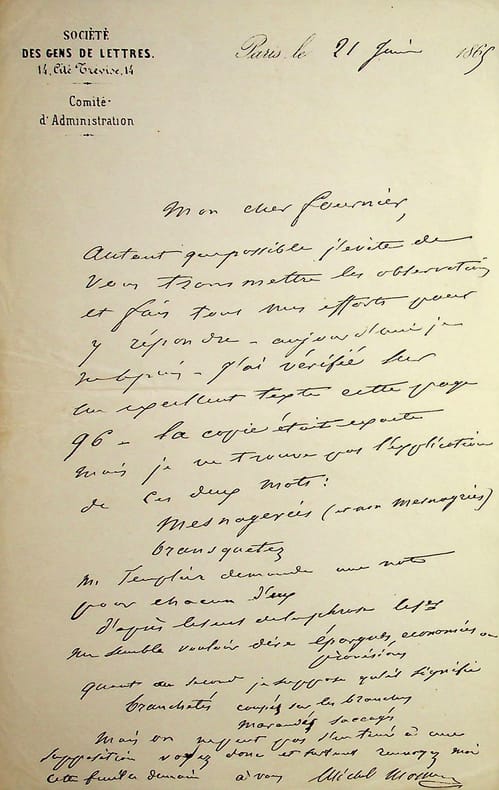 SOCIÉTÉ
DES GENS DE LETTRES.
14, Cité Trévise, 14
Comité
d'Administration
Paris, le 21 Juin 1865
Mon cher Fournier,
Autant que possible j'évite de
vous transmettre les observations
et fais tous mes efforts pour
y répondre - aujourd'hui je
ne le puis - j'ai vérifié sur
un excellent texte cette page
96 - la copie était exacte
mais je ne trouve pas l'explication
de ces deux mots :
Mesnagerées (et non Mesnageries)
bransquetez
M. Templier demande une note
pour chacun d'eux
d'après le sens de la phrase le 1er
me semble vouloir dire épargnes, économies ou
provisions
quant au second je suppose qu'il signifie
branchetés coupés sur les branches
maraudés saccagés
Mais on ne peut pas s'en tenir à une
supposition voyez donc et surtout renvoyez moi
cette feuille demain à vous Michel